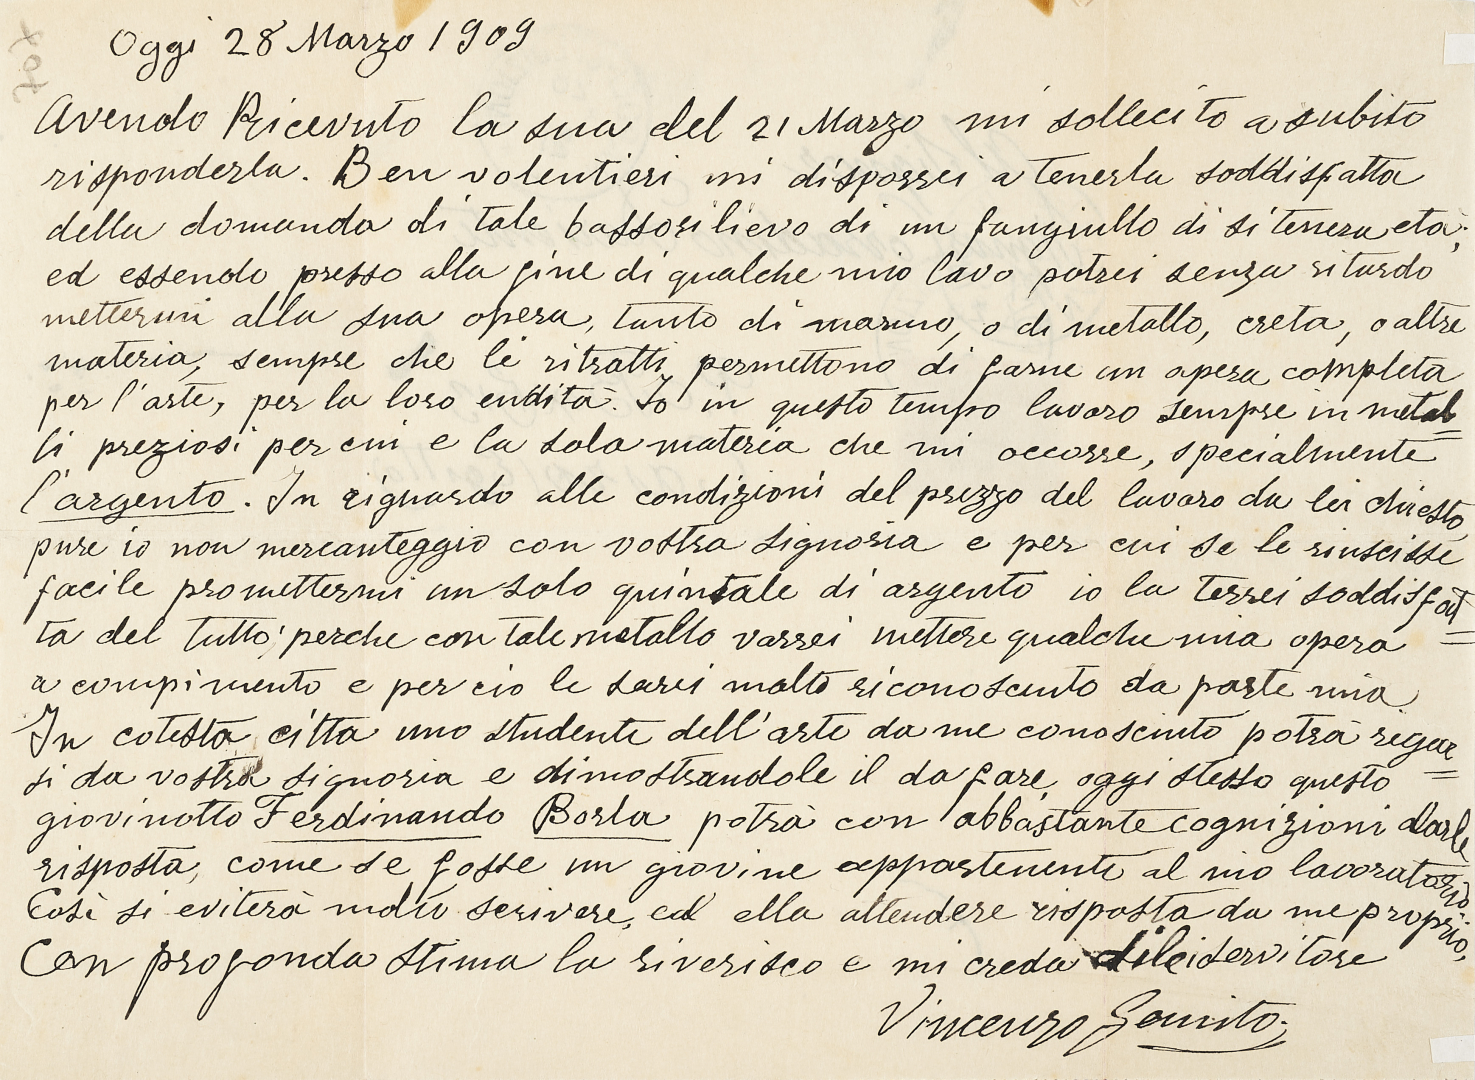 Oggi 28 Marzo 1909
Avendo Ricevuto la sua del 21 Marzo mi sollecito a subito
risponderla. Ben volentieri mi disporrei a tenerla soddisfatta
della domanda di tale bassorilievo di un fangiullo di si tenera età;
ed essendo presso alla fine di qualche mio lavo potrei senza ritardo
mettermi alla sua opera, tanto di marmo, o di metallo, creta, o altre
materia, sempre che le ritratti permettono di farne un opera completa
per l'arte, per la loro endità. Io in questo tempo lavoro sempre in metal=
li preziosi per cui e la sola materia che mi occorre, specialmente
l'argento. In riguardo alle condizioni del prezzo del lavoro da lei chiesto
pure io non mercanteggio con vostra signoria e per cui se le riuscisse
facile promettermi un solo quintale di argento io la terrei soddisfat=
ta del tutto; perche con tale metallo varrei mettere qualche mia opera
a compimento e per cio le sarei molto riconosciuto da parte mia
In cotesta citta uno studente dell'arte da me conosciuto potrà regar=
si da vostra signoria e dimostrandole il da fare, oggi stesso questo
giovinotto Ferdinando Borla potrà con abbastante cognizioni darle
risposta, come se fosse un giovine appartenente al mio lavoratorio
Così si eviterà molto scrivere, ed ella attendere risposta da me proprio,
Con profonda stima la riverisco e mi creda di lei servitore
Vincenzo Gemito